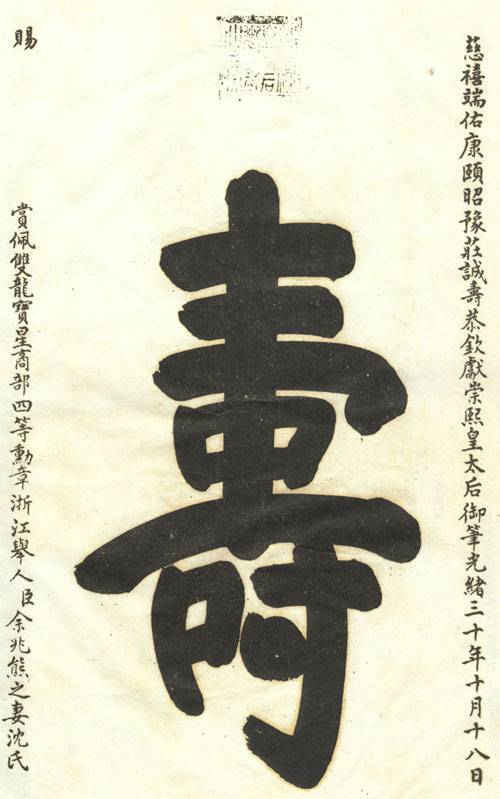 慈禧端佑康頤昭豫莊誠壽恭欽獻崇熙皇太后御筆光緒三十年十月十八日
壽
賜
賞佩雙龍寶星商部四等勳章浙江舉人臣余兆熊之妻沈氏